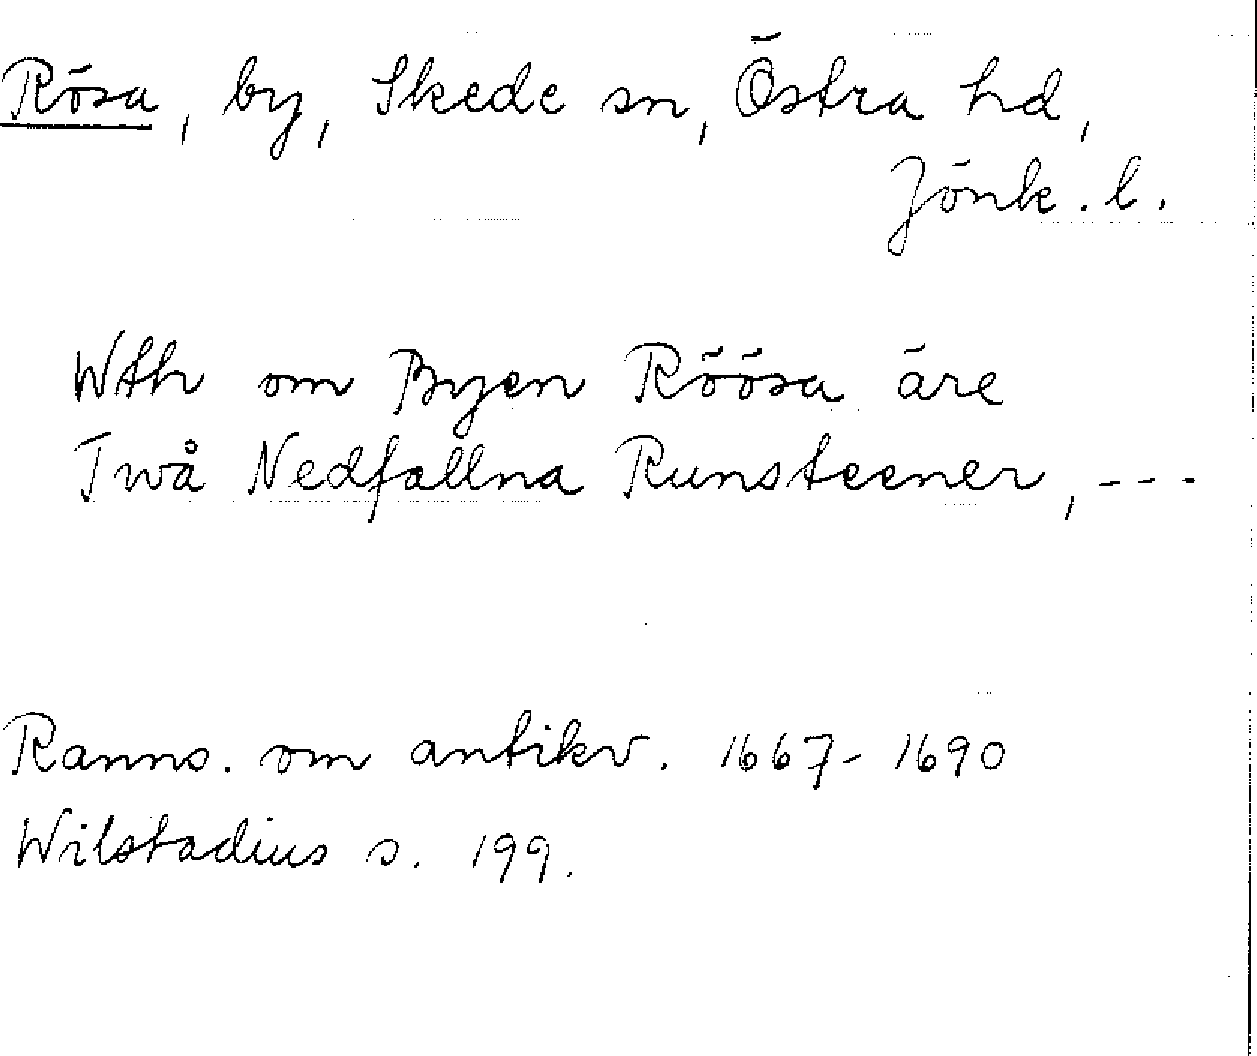 Rösa, by, Skede sn, Östra hd,
Jönk. l.
Wth om Byen Röösa äre
Twå Nedfallna Runsteener, ---
Ranns. om antikv. 1667-1690
Wilstadius s. 199.